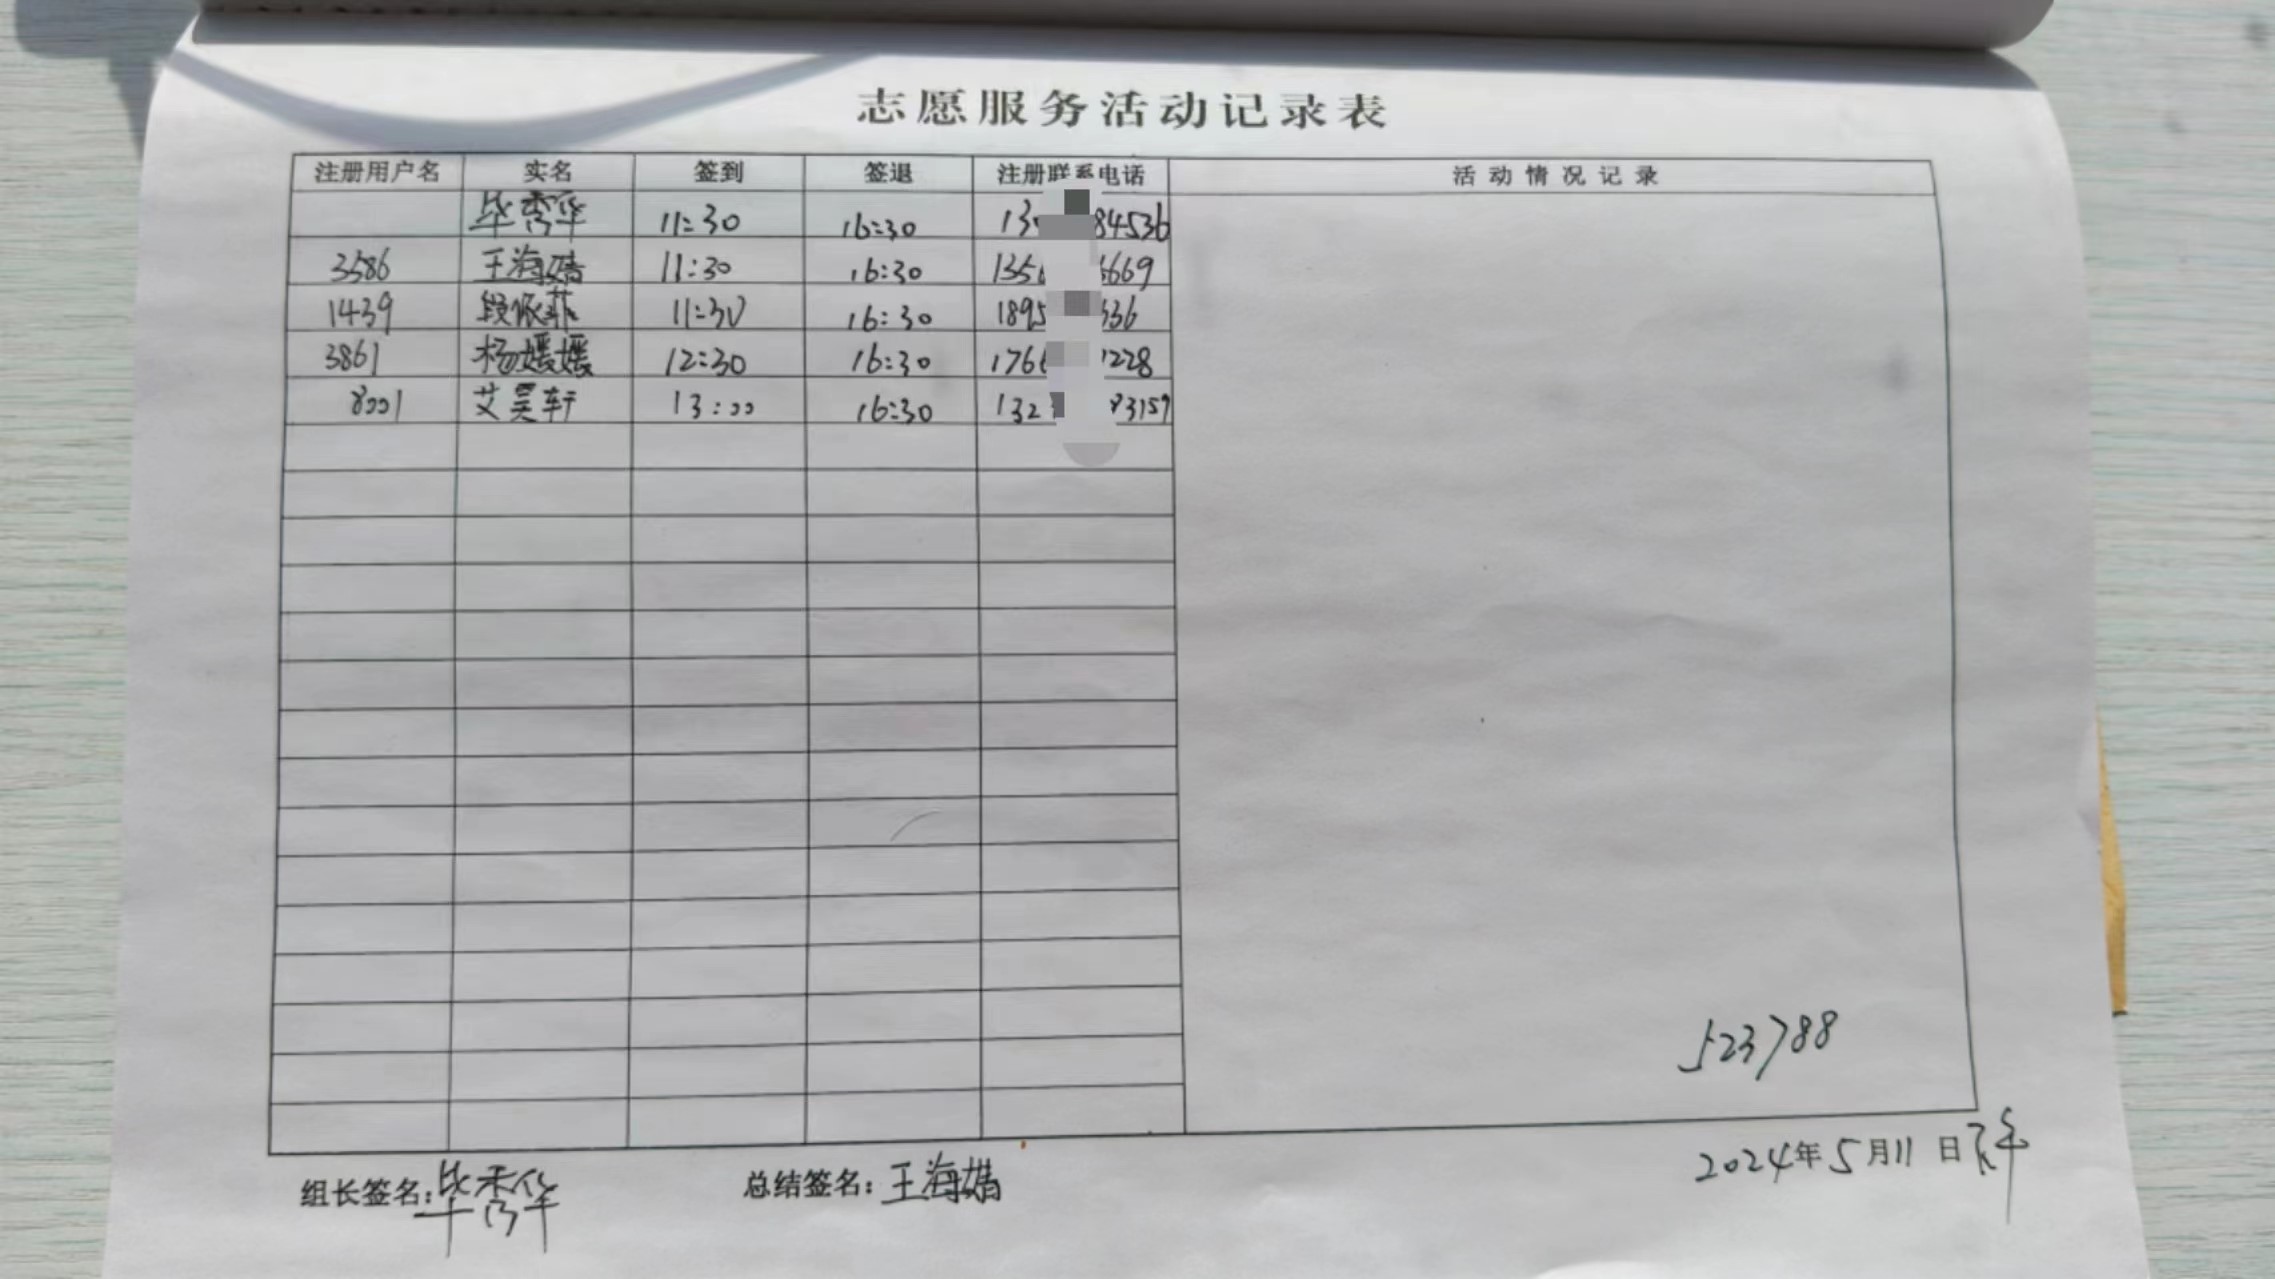 志愿服务活动记录表
注册用户名 实名 签到 签退 注册联系电话 活动情况记录
毕秀华 11:30 16:30 13 84536
3586 王海婧 11:30 16:30 135 6669
1439 段依菲 11:30 16:30 1895 636
3861 杨媛媛 12:30 16:30 176 1228
8001 艾昊轩 13:00 16:30 132 83159
523788
2024年5月11日下午
组长签名:毕秀华 总结签名:王海婧